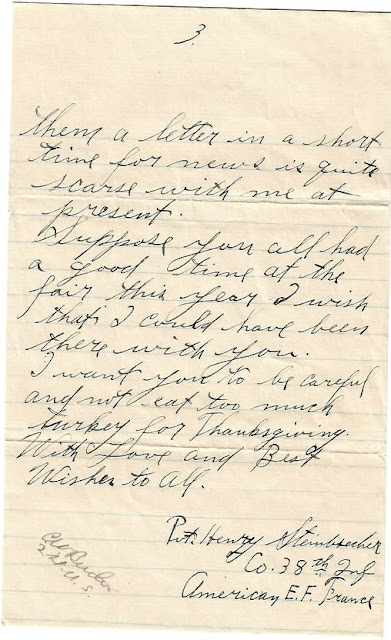 3.
them a letter in a short
time for news is quite
scarse with me at
present.
Suppose you all had
a good time at the
fair this year I wish
that I could have been
there with you.
I want you to be careful
and not eat too much
turkey for Thanksgiving.
With Love and Best
Wishes to All.
Pvt. Henry Steinbrecher
Co. 38th Inf
American E.F. France